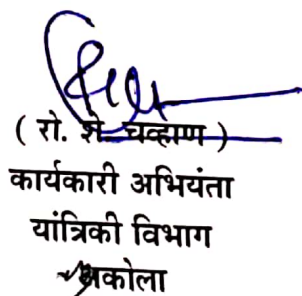 ( रो. शे. चव्हाण )
कार्यकारी अभियंता
यांत्रिकी विभाग
अकोला